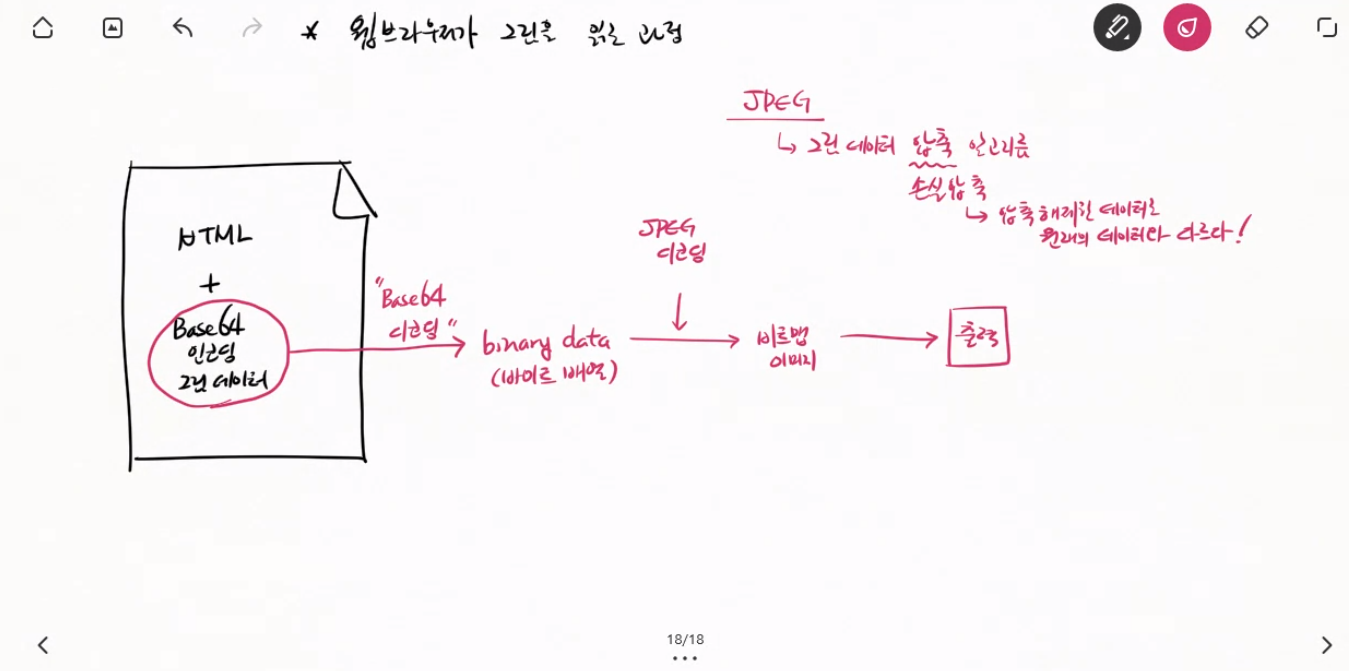 * 웹브라우저가 그림을 읽는 과정
JPEG
↳ 그림 데이터 압축 알고리즘
손실압축
↳ 압축해제한 데이터는
원래의 데이터와 다르다!
HTML
+
Base64
인코딩
그림 데이터
"Base64
디코딩"
binary data
(바이트 배열)
JPEG
디코딩
비트맵
이미지
출력
18/18